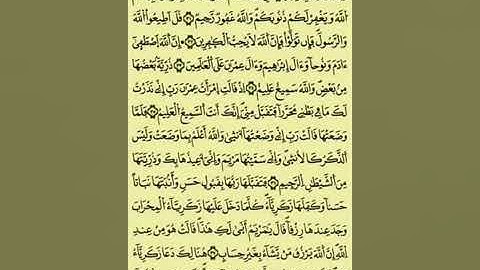 اللَّهُ وَيَغْفِرْ لَكُمْ ذُنُوبَكُمْ وَاللَّهُ غَفُورٌ رَّحِيمٌ ۝ قُلْ أَطِيعُوا اللَّهَ
وَالرَّسُولَ فَإِن تَوَلَّوْا فَإِنَّ اللَّهَ لَا يُحِبُّ الْكَافِرِينَ ۝ إِنَّ اللَّهَ اصْطَفَىٰ
ءَادَمَ وَنُوحًا وَءَالَ إِبْرَاهِيمَ وَءَالَ عِمْرَانَ عَلَى الْعَالَمِينَ ۝ ذُرِّيَّةً بَعْضُهَا
مِن بَعْضٍ وَاللَّهُ سَمِيعٌ عَلِيمٌ ۝ إِذْ قَالَتِ امْرَأَتُ عِمْرَانَ رَبِّ إِنِّي نَذَرْتُ
لَكَ مَا فِي بَطْنِي مُحَرَّرًا فَتَقَبَّلْ مِنِّي إِنَّكَ أَنتَ السَّمِيعُ الْعَلِيمُ ۝ فَلَمَّا
وَضَعَتْهَا قَالَتْ رَبِّ إِنِّي وَضَعْتُهَا أُنثَىٰ وَاللَّهُ أَعْلَمُ بِمَا وَضَعَتْ وَلَيْسَ
الذَّكَرُ كَالْأُنثَىٰ وَإِنِّي سَمَّيْتُهَا مَرْيَمَ وَإِنِّي أُعِيذُهَا بِكَ وَذُرِّيَّتَهَا
مِنَ الشَّيْطَانِ الرَّجِيمِ ۝ فَتَقَبَّلَهَا رَبُّهَا بِقَبُولٍ حَسَنٍ وَأَنبَتَهَا نَبَاتًا
حَسَنًا وَكَفَّلَهَا زَكَرِيَّاءَ كُلَّمَا دَخَلَ عَلَيْهَا زَكَرِيَّاءُ الْمِحْرَابَ
وَجَدَ عِندَهَا رِزْقًا قَالَ يَا مَرْيَمُ أَنَّىٰ لَكِ هَٰذَا قَالَتْ هُوَ مِنْ عِندِ
اللَّهِ إِنَّ اللَّهَ يَرْزُقُ مَن يَشَاءُ بِغَيْرِ حِسَابٍ ۝ هُنَالِكَ دَعَا زَكَرِيَّاءُ